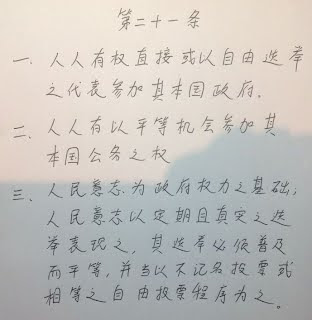 第二十一条
一、人人有权直接或以自由选举
之代表参加其本国政府.
二、人人有以平等机会参加其
本国公务之权
三、人民意志为政府权力之基础;
人民意志以定期且真实之选
举表现之,其选举必须普及
而平等,并当以不记名投票或
相等之自由投票程序为之。